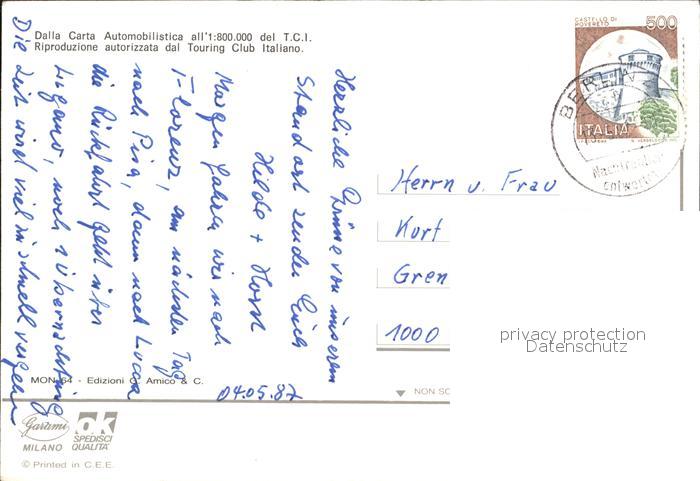 Dalla Carta Automobilistica all'1:800.000 del T.C.I.
Riproduzione autorizzata dal Touring Club Italiano.
CASTELLO DI
ROVERETO
500
ITALIA
BERLIN
Nachträglich
entwertet
Herzliche Grüße von unserem
Standort senden Euch
Hilde + Horst
Morgen fahren wir nach
Florenz, am nächsten Tag
nach Pisa, dann nach Lucca
die Rückfahrt geht über
Lugano, noch 1 Übernachtung
Die Zeit wird viel zu schnell vergehen
04.05.87
Herrn u. Frau
Kurt
Gren
1000
privacy protection
Datenschutz
MON 64 - Edizioni G. Amico & C.
NON SC
Garami
MILANO
ok
SPEDISCI
QUALITA'
© Printed in C.E.E.